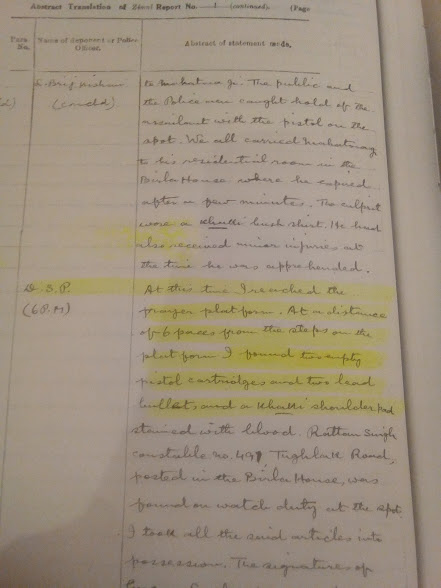 Abstract Translation of Zimni Report No. 1 (continued). (Page
Para No. Name of deponent or Police Officer. Abstract of statement made.
L. Brij Kishan to Mahatma Ji. The public and
(contd) the Police men caught hold of the
assailant with the pistol on the
spot. We all carried Mahatmaji
to his residential room in the
Birla House where he expired
after a few minutes. The culprit
wore a Khakki bush shirt. He had
also received minor injuries at
the time he was apprehended.
D. S. P. At this time I reached the
(6 P.M) prayer platform. At a distance
of 6 paces from the steps on the
platform I found two empty
pistol cartridges and two lead
bullets and a Khakki shoulder pad
stained with blood. Rattan Singh
constable no. 491, Tughluk Road,
posted in the Birla House, was
found on watch duty at the spot
I took all the said articles into
possession. The signatures of